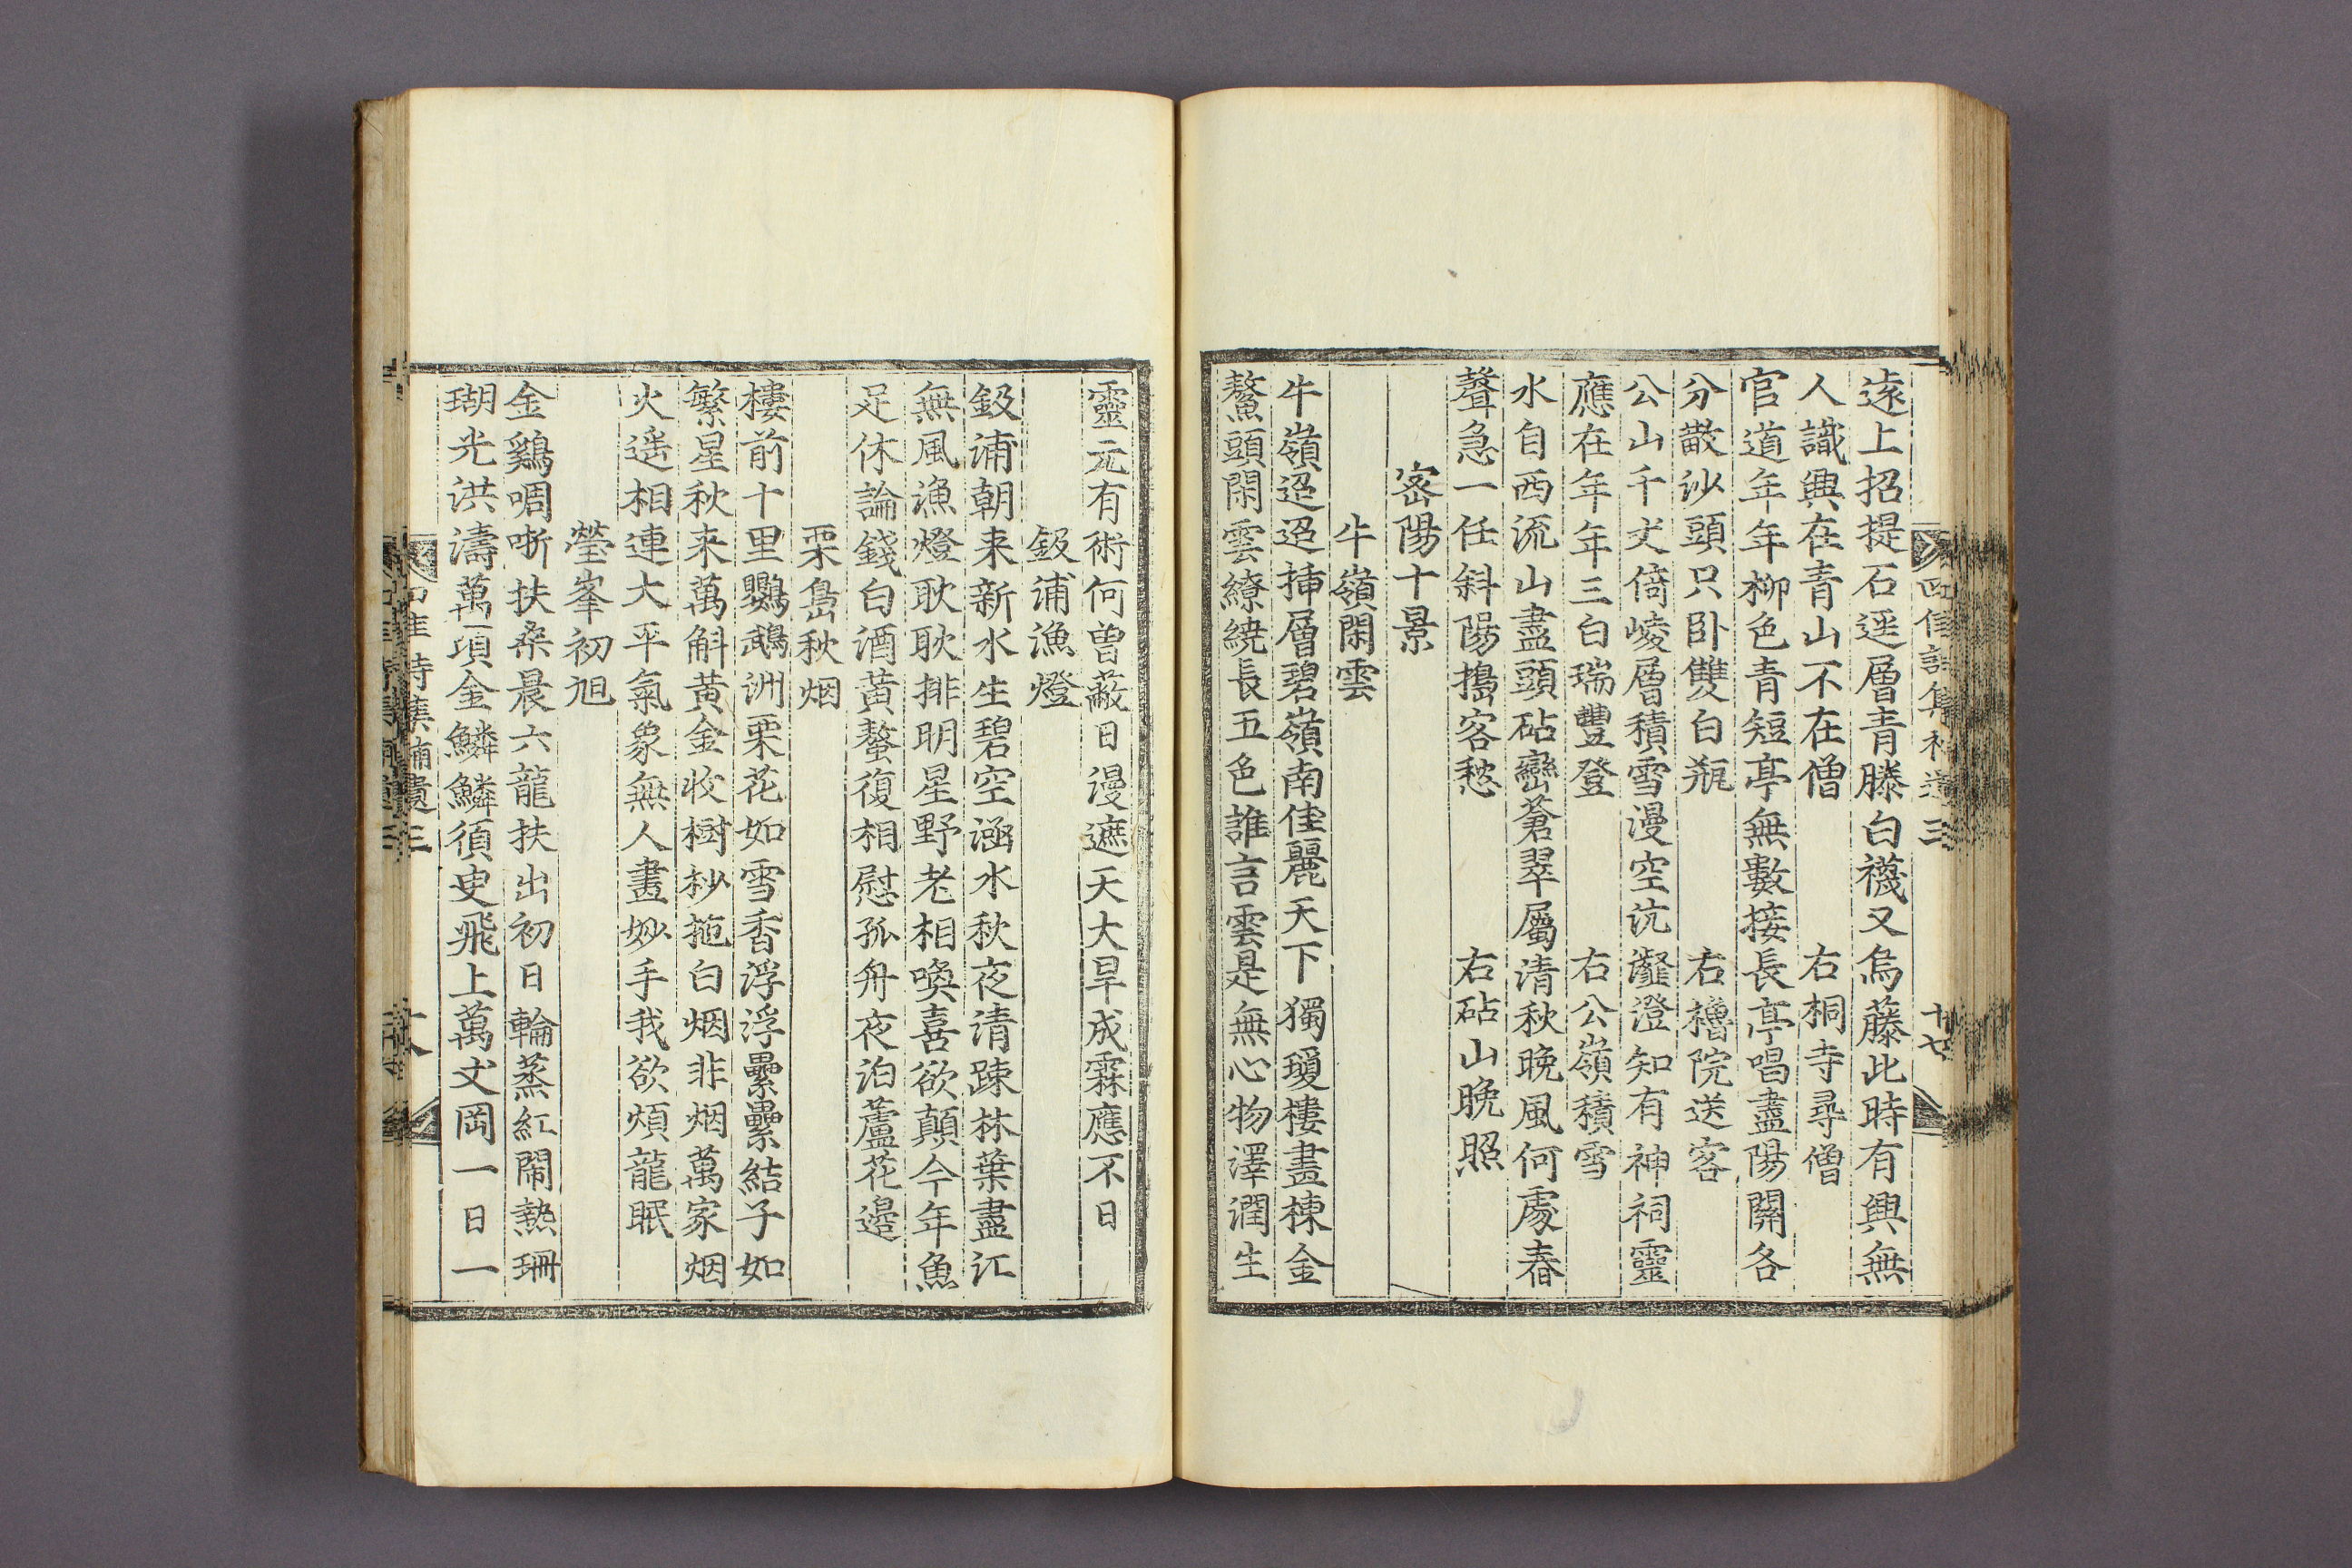 遠上招提石逕層青縢白襪又烏藤此時有興無
人識興在青山不在僧　右桐寺尋僧
官道年年柳色青短亭無數接長亭唱盡陽關各
分散沙頭只卧雙白瓶　右櫓院送客
公山千丈倚崚層積雪漫空沆瀣澄知有神祠靈
應在年年三白瑞豐登　右公嶺積雪
水自西流山盡頭砧巒蒼翠屬清秋晚風何處舂
聲急一任斜陽搗客愁　右砧山晚照
密陽十景
牛嶺閑雲
牛嶺迢迢揷層碧嶺南佳麗天下獨瓊樓畫棟金
鰲頭閑雲繚繞長五色誰言雲是無心物澤潤生
靈元有術何曾蔽日漫遮天大旱成霖應不日
鈒浦漁燈
鈒浦朝来新水生碧空涵水秋夜清踈林葉盡江
無風漁燈耿耿排明星野老相喚喜欲顛今年魚
足休論錢白酒黃螯復相慰孤舟夜泊蘆花邉
栗島秋烟
樓前十里鸚鵡洲栗花如雪香浮浮纍纍結子如
繁星秋来萬斛黃金收樹杪拖白烟非烟萬家烟
火遥相連大平氣象無人畫妙手我欲煩龍眠
瑩峯初旭
金鷄啁哳扶桑晨六龍扶出初日輪蒸紅鬧熱珊
瑚光洪濤萬頃金鱗鱗須臾飛上萬丈岡一日一